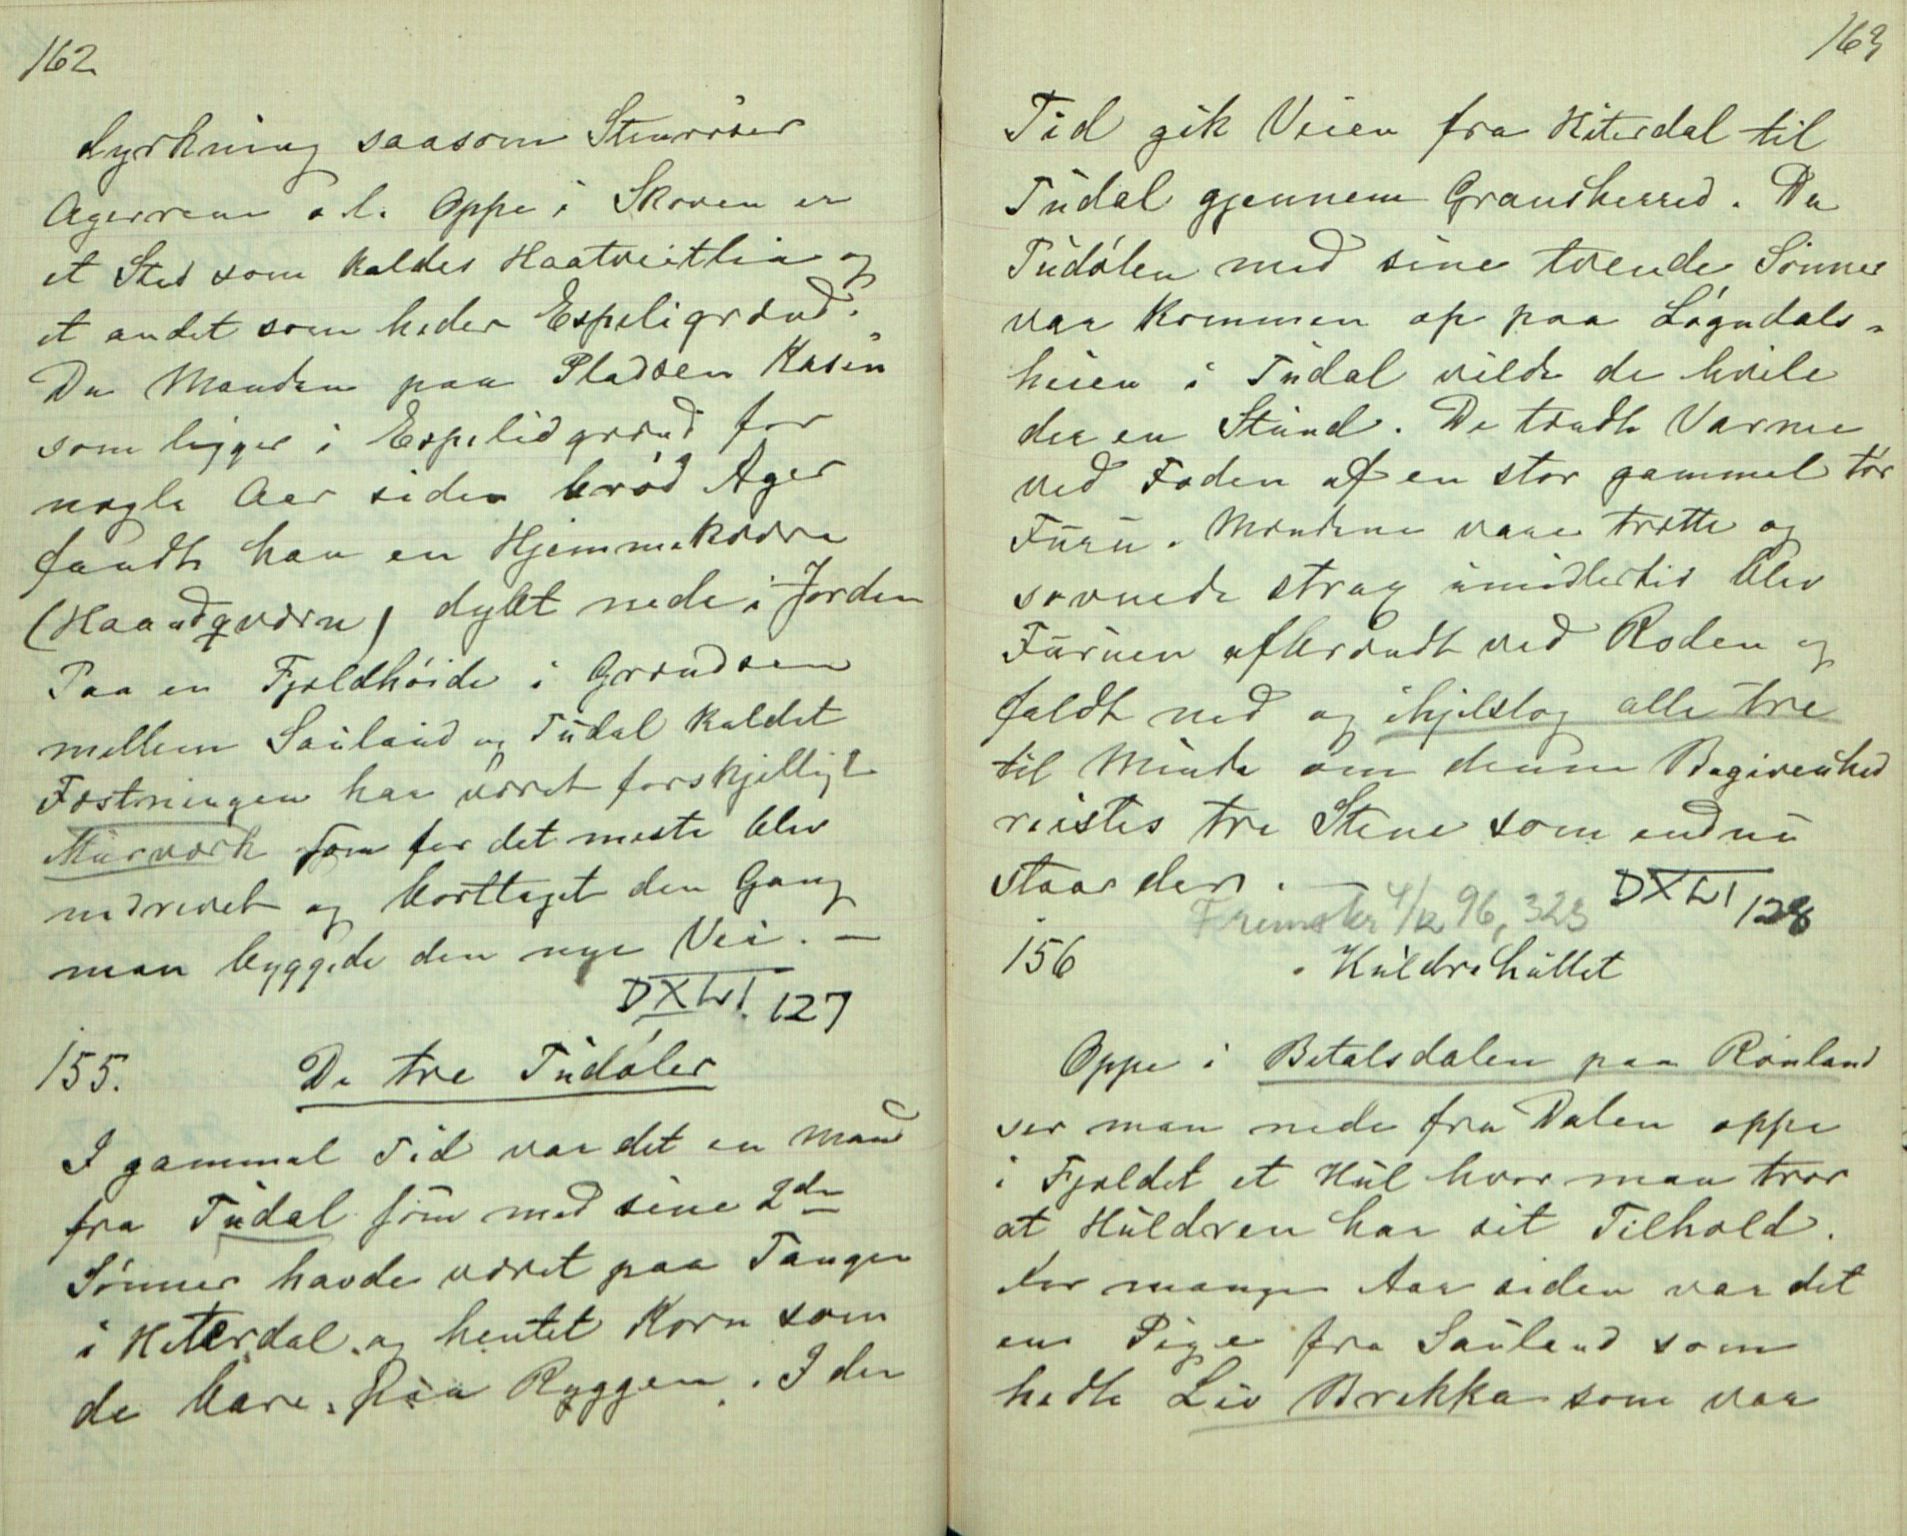 162
dyrkning saasom Stenrøser
Agerrene o. l. Oppe i Skoven er
et Sted som kaldes Haatveitlia og
et andet som heder Espeligrænd.
Da Manden paa Pladsen Kasin
som ligger i Espelidgrænd for
nogle Aar siden brød Ager
fandt han en Hjemmekværn
(Haandqværn) dybt nede i Jorden
Paa en Fjeldhøide i Grændsen
mellem Sauland og Tudal kaldet
Fæstningen har været forskjelligt
Murværk som for det meste blev
nedrevet og borttaget den Gang
man byggede den nye Vei. —
DXLVI. 127
155. De tre Tudøler
I gammel Tid var det en Mand
fra Tudal som med sine 2de
Sønner havde været paa Tangen
i Hiterdal og hentet Korn som
de bare paa Ryggen. I den
163
Tid gik Veien fra Hiterdal til
Tudal gjennem Gransherred. Da
Tudølen med sine tvende Sønner
var kommen op paa Løgndals-
heien i Tudal vilde de hvile
der en Stund. De tændte Varme
ved Foden af en stor gammel tør
Furu. Mændene vare trætte og
sovnede strax imidlertid blev
Furuen afbrændt ved Roden og
faldt ned og ihjelslog alle tre
til Minde om denne Begivenhed
reistes tre Stene som endnu
staar der. — DXLVI 128
4/12 96, 323
156 Huldrehullet
Oppe i Bitalsdalen paa Rønland
ser man nede fra Dalen oppe
i Fjeldet et Hul hvor man tror
at Huldren har sit Tilhold.
For mange Aar siden var det
en Pige fra Sauland som
hedte Liv Brekka som var